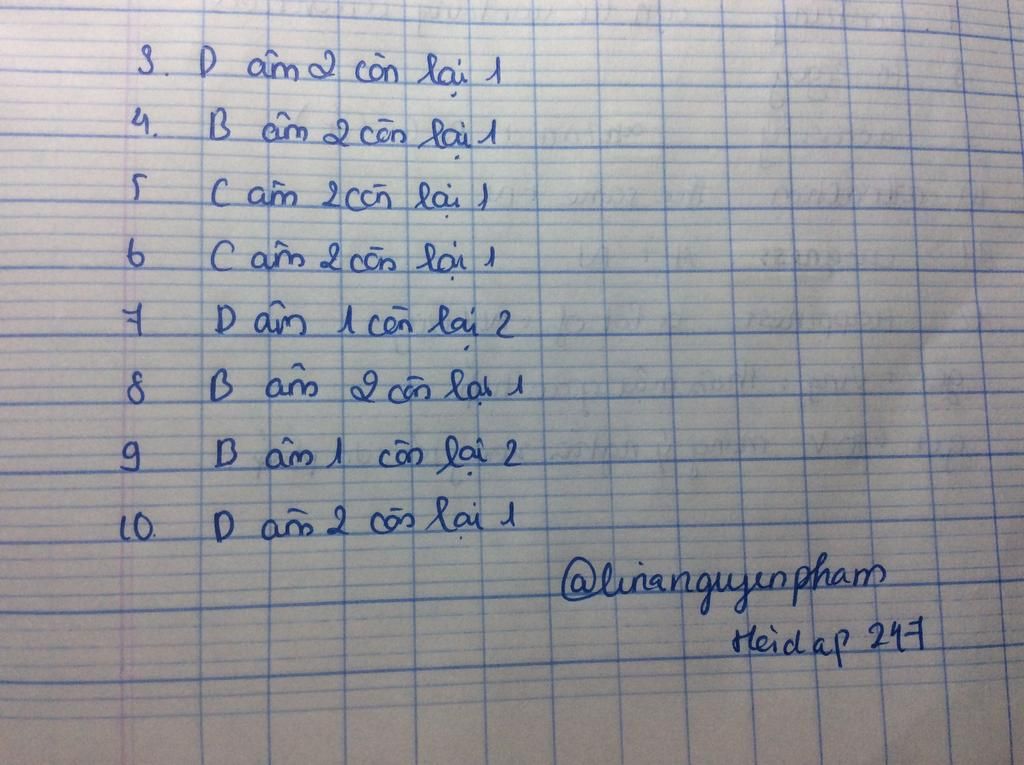 3. D âm 2 còn lại 1
4. B âm 2 còn lại 1
5 C âm 2 còn lại 1
6 C âm 2 còn lại 1
7 D âm 1 còn lại 2
8 B âm 2 còn lại 1
9 B âm 1 còn lại 2
10. D âm 2 còn lại 1
@linanguyenpham
Hoidap 247